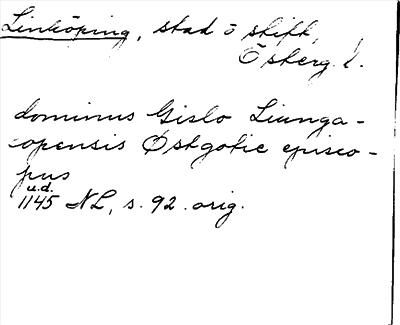 Linköping, stad o stift,
Österg. l.
dominus Gislo Liunga-
copensis Østgotie episco-
pus
u.d.
1145 NL, s. 92. orig.